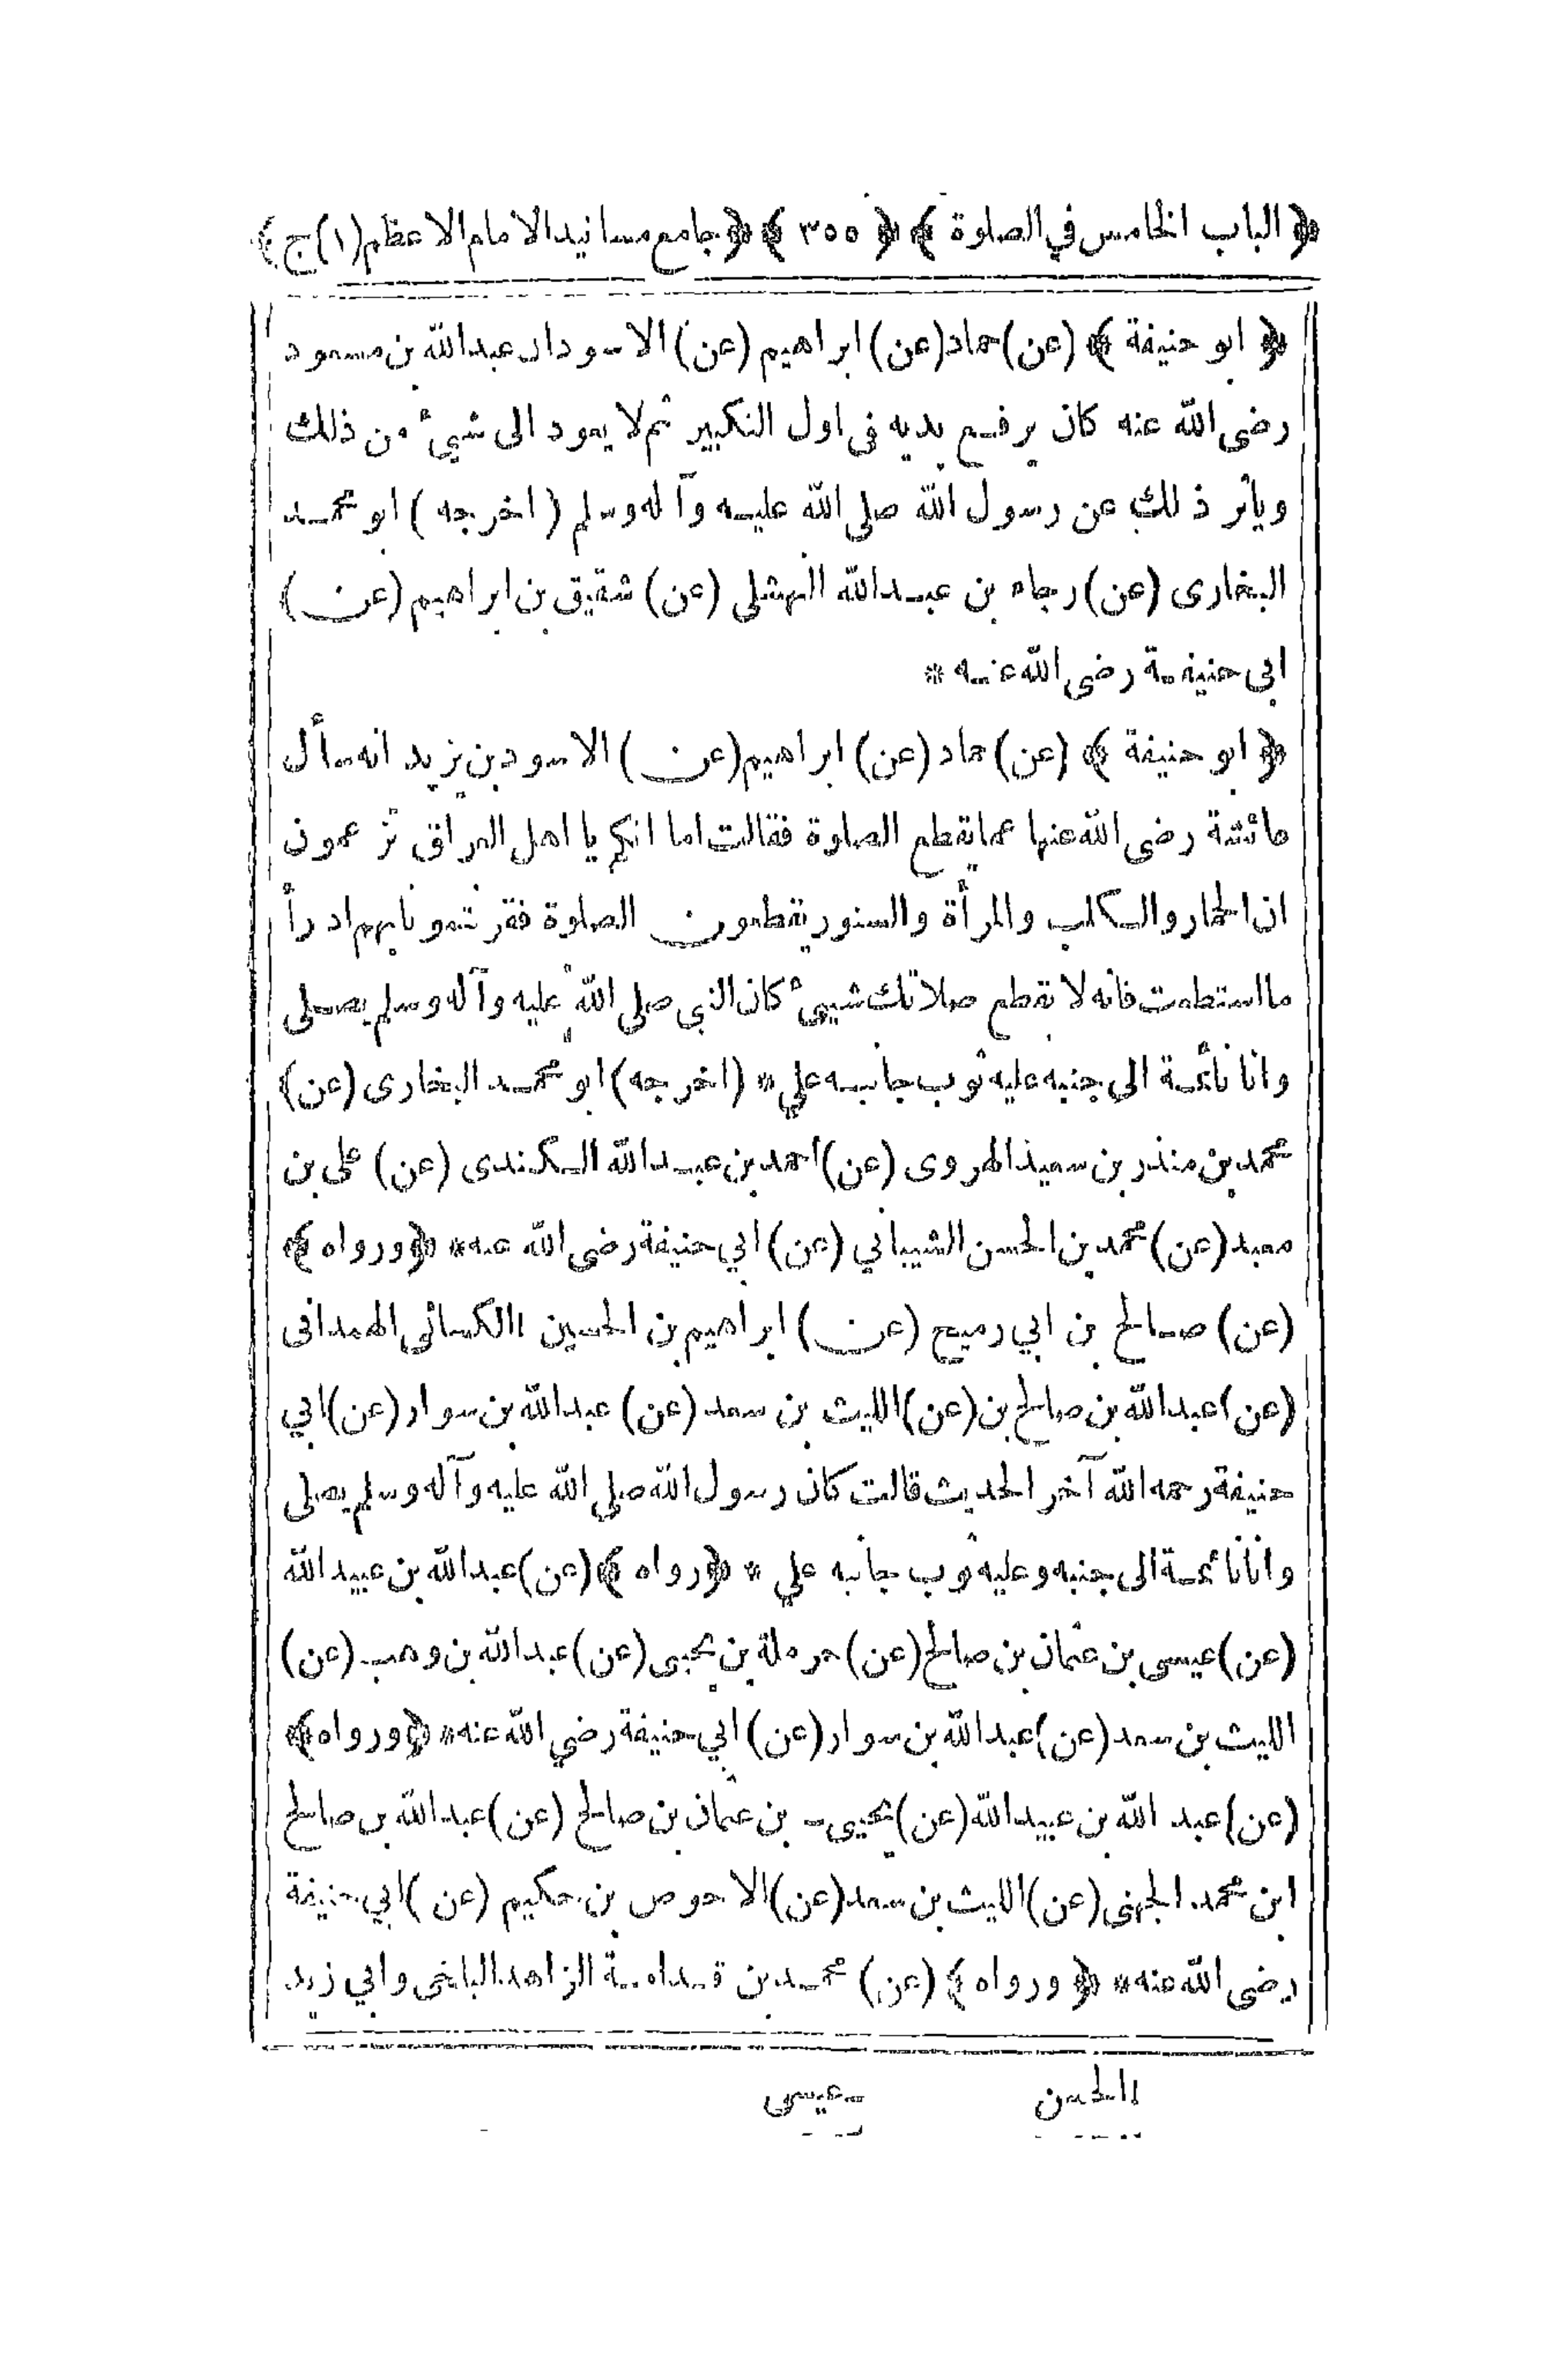 ﴿ الباب الخامس في الصلوة ﴾ ﴿ ٣٥٥ ﴾ ﴿ جامع مسانيد الامام الاعظم (١) ج ﴾
﴿ ابو حنيفة ﴾ (عن) حماد (عن) ابراهيم (عن) الاسود ان عبد الله بن مسعود
رضى الله عنه كان يرفع يديه فى اول التكبير ثم لا يعود الى شيئ من ذلك
ويأثر ذلك عن رسول الله صلى الله عليه وآله وسلم (اخرجه) ابو محمد
البخارى (عن) رجاء بن عبد الله النهشلى (عن) شقيق بن ابراهيم (عن)
ابى حنيفة رضى الله عنه *
﴿ ابو حنيفة ﴾ (عن) حماد (عن) ابراهيم (عن) الاسود بن يزيد انه سأل
عائشة رضى الله عنها عما يقطع الصلوة فقالت اما انكم يا اهل العراق تزعمون
ان الحمار والكلب والمرأة والسنور يقطعون الصلوة فقرنتمونا بهم ادرأ
ما استطعت فانه لا يقطع صلاتك شيئ كان النبى صلى الله عليه وآله وسلم يصلى
وانا نائمة الى جنبه عليه ثوب جانبه علي * (اخرجه) ابو محمد البخارى (عن)
محمد بن منذر بن سعيد الهروى (عن) احمد بن عبد الله الكندى (عن) على بن
معبد (عن) محمد بن الحسن الشيباني (عن) ابي حنيفة رضى الله عنه * ﴿ ورواه ﴾
(عن) صالح بن ابي رميح (عن) ابراهيم بن الحسين ١ الكسائي الهمدانى
(عن) عبد الله بن صالح بن (عن) الليث بن سعد (عن) عبد الله بن سوار (عن) ابي
حنيفة رحمه الله آخر الحديث قالت كان رسول الله صلى الله عليه وآله وسلم يصلى
وانا نائمة الى جنبه وعليه ثوب جانبه علي * ﴿ رواه ﴾ (عن) عبد الله بن عبيد الله
(عن) عيسى بن عثمان بن صالح (عن) حرملة بن يحيى (عن) عبد الله بن وهب (عن)
الليث بن سعد (عن) عبد الله بن سوار (عن) ابي حنيفة رضي الله عنه * ﴿ ورواه ﴾
(عن) عبد الله بن عبيد الله (عن) يحيى بن عثمان بن صالح (عن) عبد الله بن صالح
ابن محمد الجهنى (عن) الليث بن سعد (عن) الاحوص بن حكيم (عن) ابي حنيفة
رضى الله عنه * ﴿ ورواه ﴾ (عن) محمد بن قدامة الزاهد البلخى وابي زيد
١ الحسن عيسى